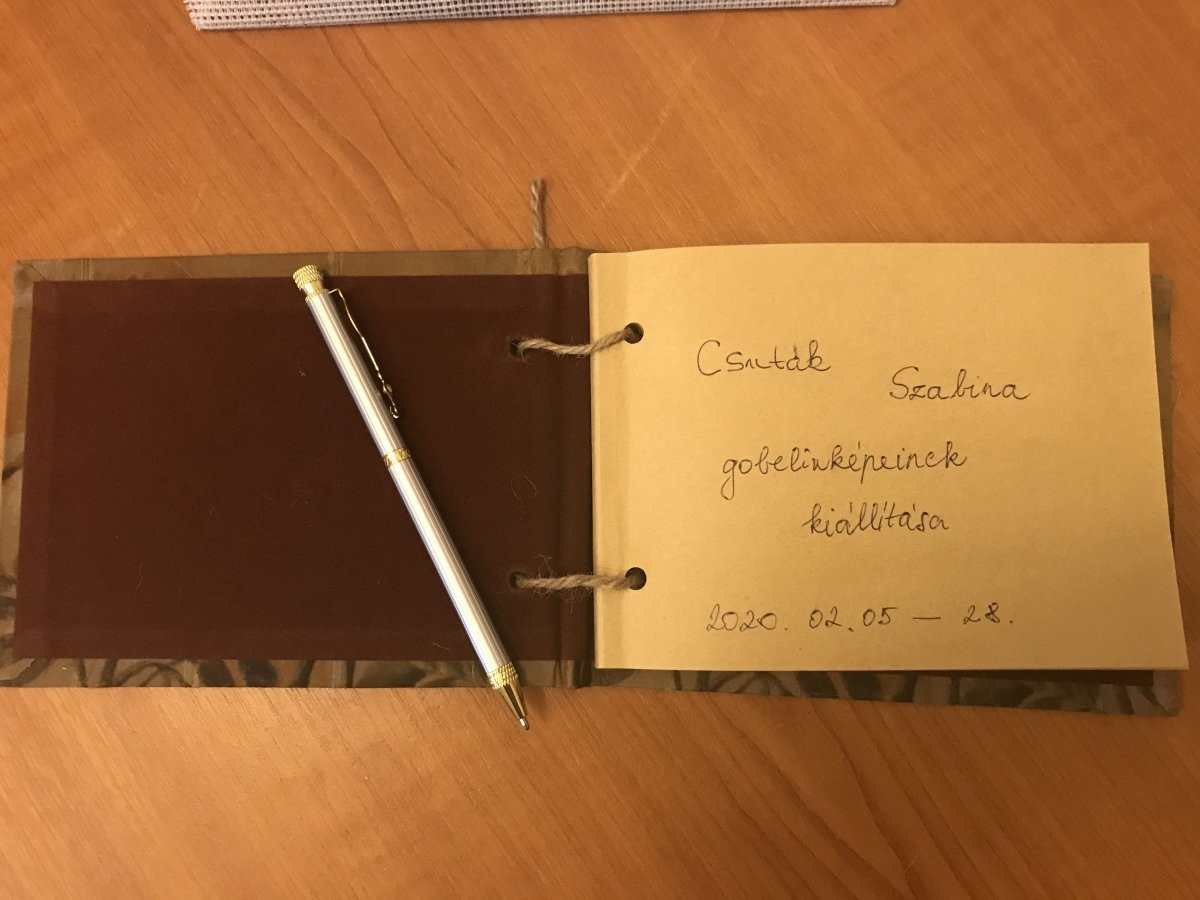 Csuták
Szabina
gobelinképeinek
kiállítása
2020. 02. 05 — 28.